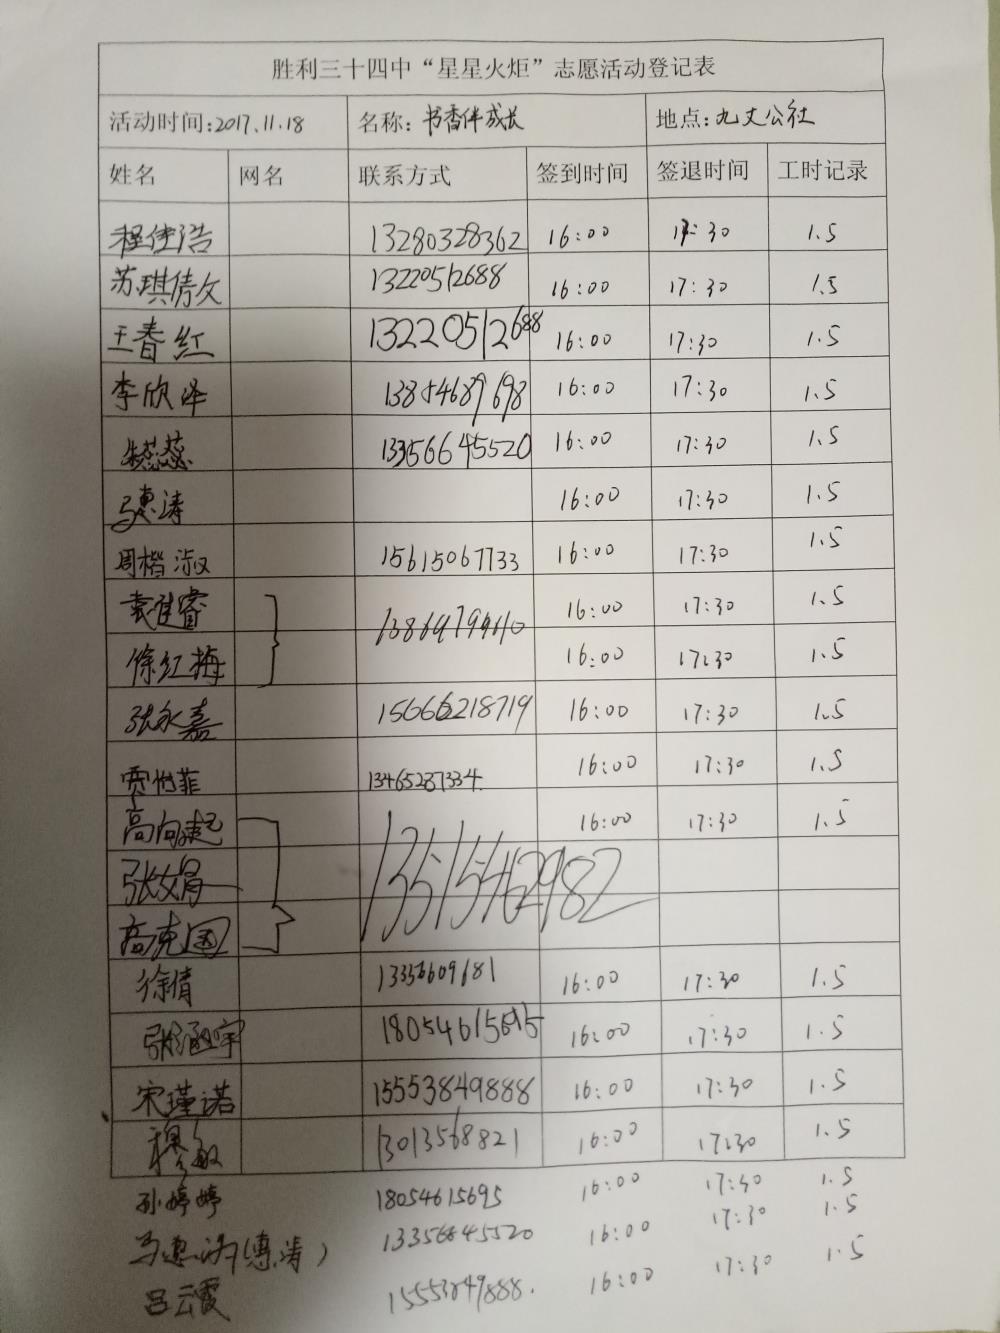 胜利三十四中“星星火炬”志愿活动登记表
活动时间:2017.11.18 名称:书香伴成长 地点:九丈公社
姓名 网名 联系方式 签到时间 签退时间 工时记录
程佳浩 13280328362 16:00 17:30 1.5
苏琪倩文 13220512688 16:00 17:30 1.5
王春红 13220512688 16:00 17:30 1.5
李欣泽 13854689698 16:00 17:30 1.5
13356645520 16:00 17:30 1.5
马惠涛 16:00 17:30 1.5
周楷淑 15615067733 16:00 17:30 1.5
袁佳睿 16:00 17:30 1.5
徐红梅 16:00 17:30 1.5
张永嘉 15666218719 16:00 17:30 1.5
贾怡菲 13465287334 16:00 17:30 1.5
高向起 13515462982 16:00 17:30 1.5
张文娟
高克国
徐倩 13356609681 16:00 17:30 1.5
张涵宇 18054615695 16:00 17:30 1.5
宋瑾诺 15553849888 16:00 17:30 1.5
穆敏 13013568821 16:00 17:30 1.5
孙婷婷 18054615695 16:00 17:30 1.5
马惠涛(惠涛) 13356645520 16:00 17:30 1.5
吕云霞 15553849888. 16:00 17:30 1.5